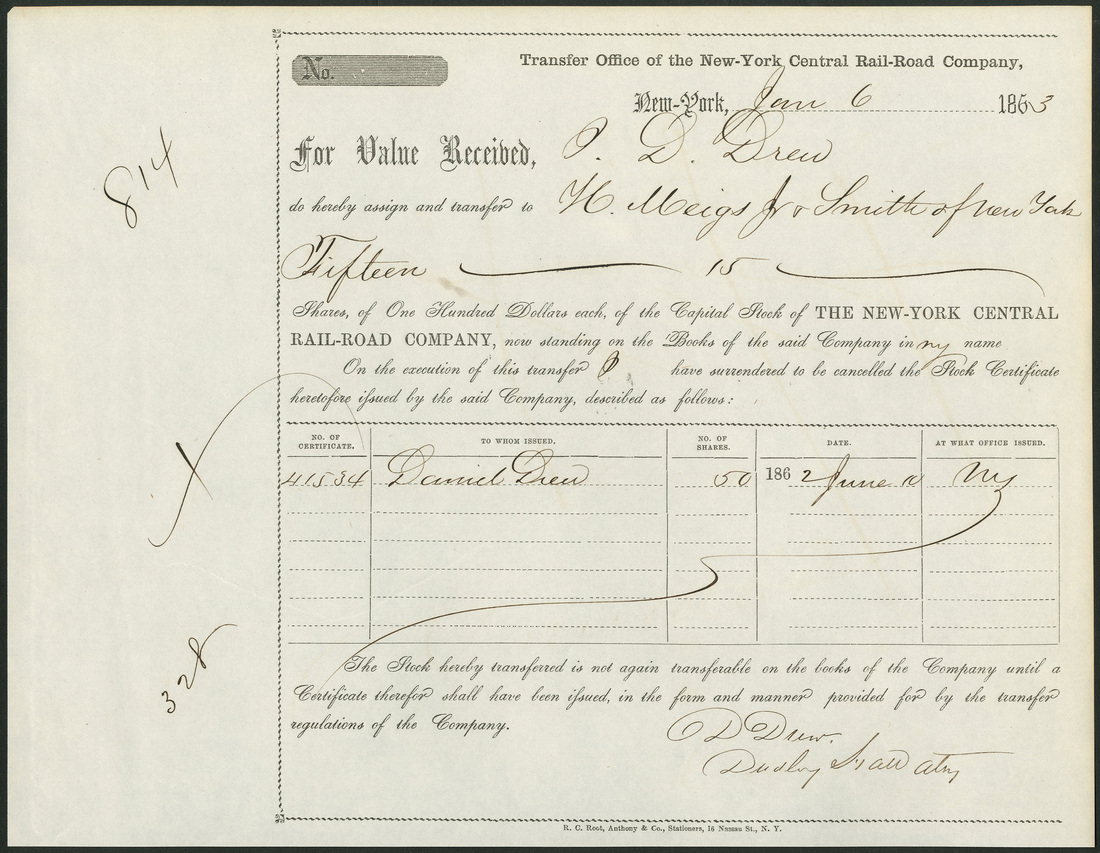 No.
Transfer Office of the New-York Central Rail-Road Company,
New-York, Jan 6 1863
For Value Received, I. D. Drew
do hereby assign and transfer to H. Meigs Jr & Smith of New York
Fifteen 15
Shares, of One Hundred Dollars each, of the Capital Stock of THE NEW-YORK CENTRAL
RAIL-ROAD COMPANY, now standing on the Books of the said Company in my name
On the execution of this transfer I have surrendered to be cancelled the Stock Certificate
heretofore issued by the said Company, described as follows:
NO. OF CERTIFICATE. TO WHOM ISSUED. NO. OF SHARES. DATE. AT WHAT OFFICE ISSUED.
41534 Daniel Drew 50 1862 June 10 NY
The Stock hereby transferred is not again transferable on the books of the Company until a
Certificate therefor shall have been issued, in the form and manner provided for by the transfer
regulations of the Company.
D Drew.
Dudley atty
R. C. Root, Anthony & Co., Stationers, 16 Nassau St., N. Y.
814
X
328